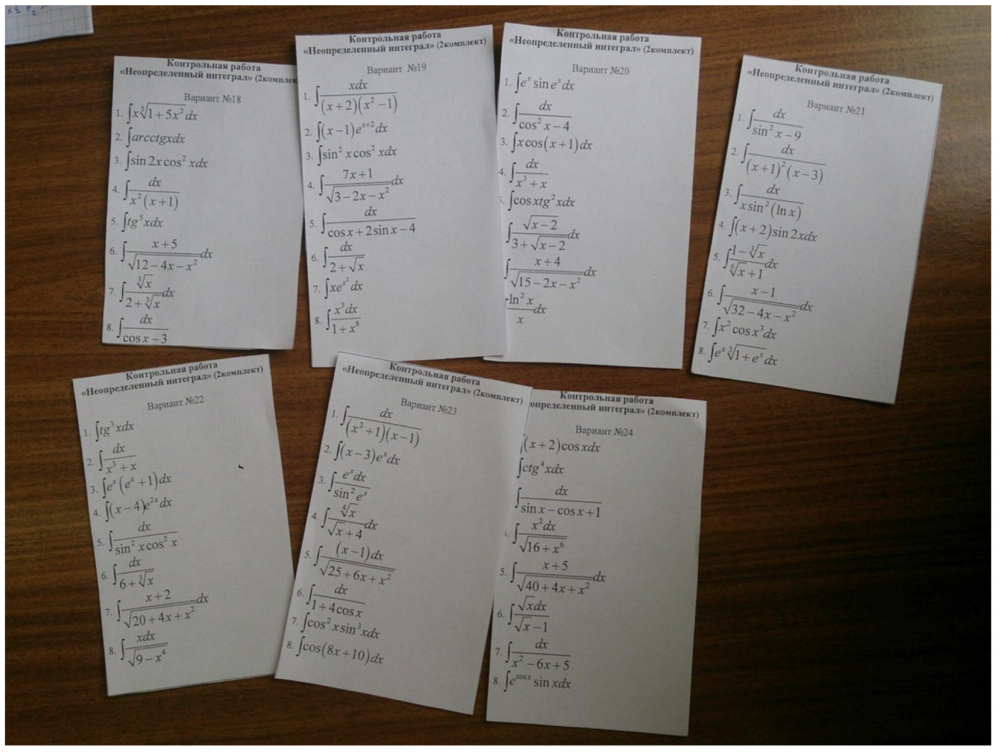 Контрольная работа
«Неопределенный интеграл» (2комплект)
Вариант №18
1. ∫x∛(1+5x²)dx
2. ∫arcctgxdx
3. ∫sin 2x cos² xdx
4. ∫dx/(x²(x+1))
5. ∫tg⁵xdx
6. ∫(x+5)/√(12−4x−x²)dx
7. ∫∛x/(2+∛x)dx
8. ∫dx/(cos x−3)
Контрольная работа
«Неопределенный интеграл» (2комплект)
Вариант №19
1. ∫xdx/((x+2)(x²−1))
2. ∫(x−1)eˣ⁺²dx
3. ∫sin² x cos² xdx
4. ∫(7x+1)/√(3−2x−x²)dx
5. ∫dx/(cos x+2sin x−4)
6. ∫dx/(2+√x)
7. ∫xe^(x²)dx
8. ∫x³dx/(1+x⁸)
Контрольная работа
«Неопределенный интеграл» (2комплект)
Вариант №20
1. ∫eˣ sin eˣdx
2. ∫dx/(cos² x−4)
3. ∫x cos(x+1)dx
4. ∫dx/(x³+x)
∫cos xtg²xdx
∫√(x−2)/(3+√(x−2))dx
∫(x+4)/√(15−2x−x²)dx
ln² x/x dx
Контрольная работа
«Неопределенный интеграл» (2комплект)
Вариант №21
1. ∫dx/(sin² x−9)
2. ∫dx/((x+1)²(x−3))
3. ∫dx/(x sin²(ln x))
4. ∫(x+2)sin 2xdx
5. ∫(1−∛x)/(⁶√x+1)dx
6. ∫(x−1)/√(32−4x−x²)dx
7. ∫x² cos x³dx
8. ∫eˣ∛(1+eˣ)dx
Контрольная работа
«Неопределенный интеграл» (2комплект)
Вариант №22
1. ∫tg³xdx
2. ∫dx/(x³+x)
3. ∫eˣ(eˣ+1)dx
4. ∫(x−4)e²ˣdx
5. ∫dx/(sin² x cos² x)
6. ∫dx/(6+∛x)
7. ∫(x+2)/√(20+4x+x²)dx
8. ∫xdx/√(9−x⁴)
Контрольная работа
«Неопределенный интеграл» (2комплект)
Вариант №23
1. ∫dx/((x²+1)(x−1))
2. ∫(x−3)eˣdx
3. ∫eˣdx/sin² eˣ
4. ∫∜x/(√x+4)dx
5. ∫(x−1)dx/√(25+6x+x²)
6. ∫dx/(1+4cos x)
7. ∫cos² x sin³ xdx
8. ∫cos(8x+10)dx
Контрольная работа
определенный интеграл» (2комплект)
Вариант №24
∫(x+2)cos xdx
∫ctg⁴xdx
∫dx/(sin x−cos x+1)
∫x²dx/√(16+x⁶)
5. ∫(x+5)/√(40+4x+x²)dx
6. ∫√xdx/(√x−1)
7. ∫dx/(x²−6x+5)
8. ∫e^(cos x) sin xdx